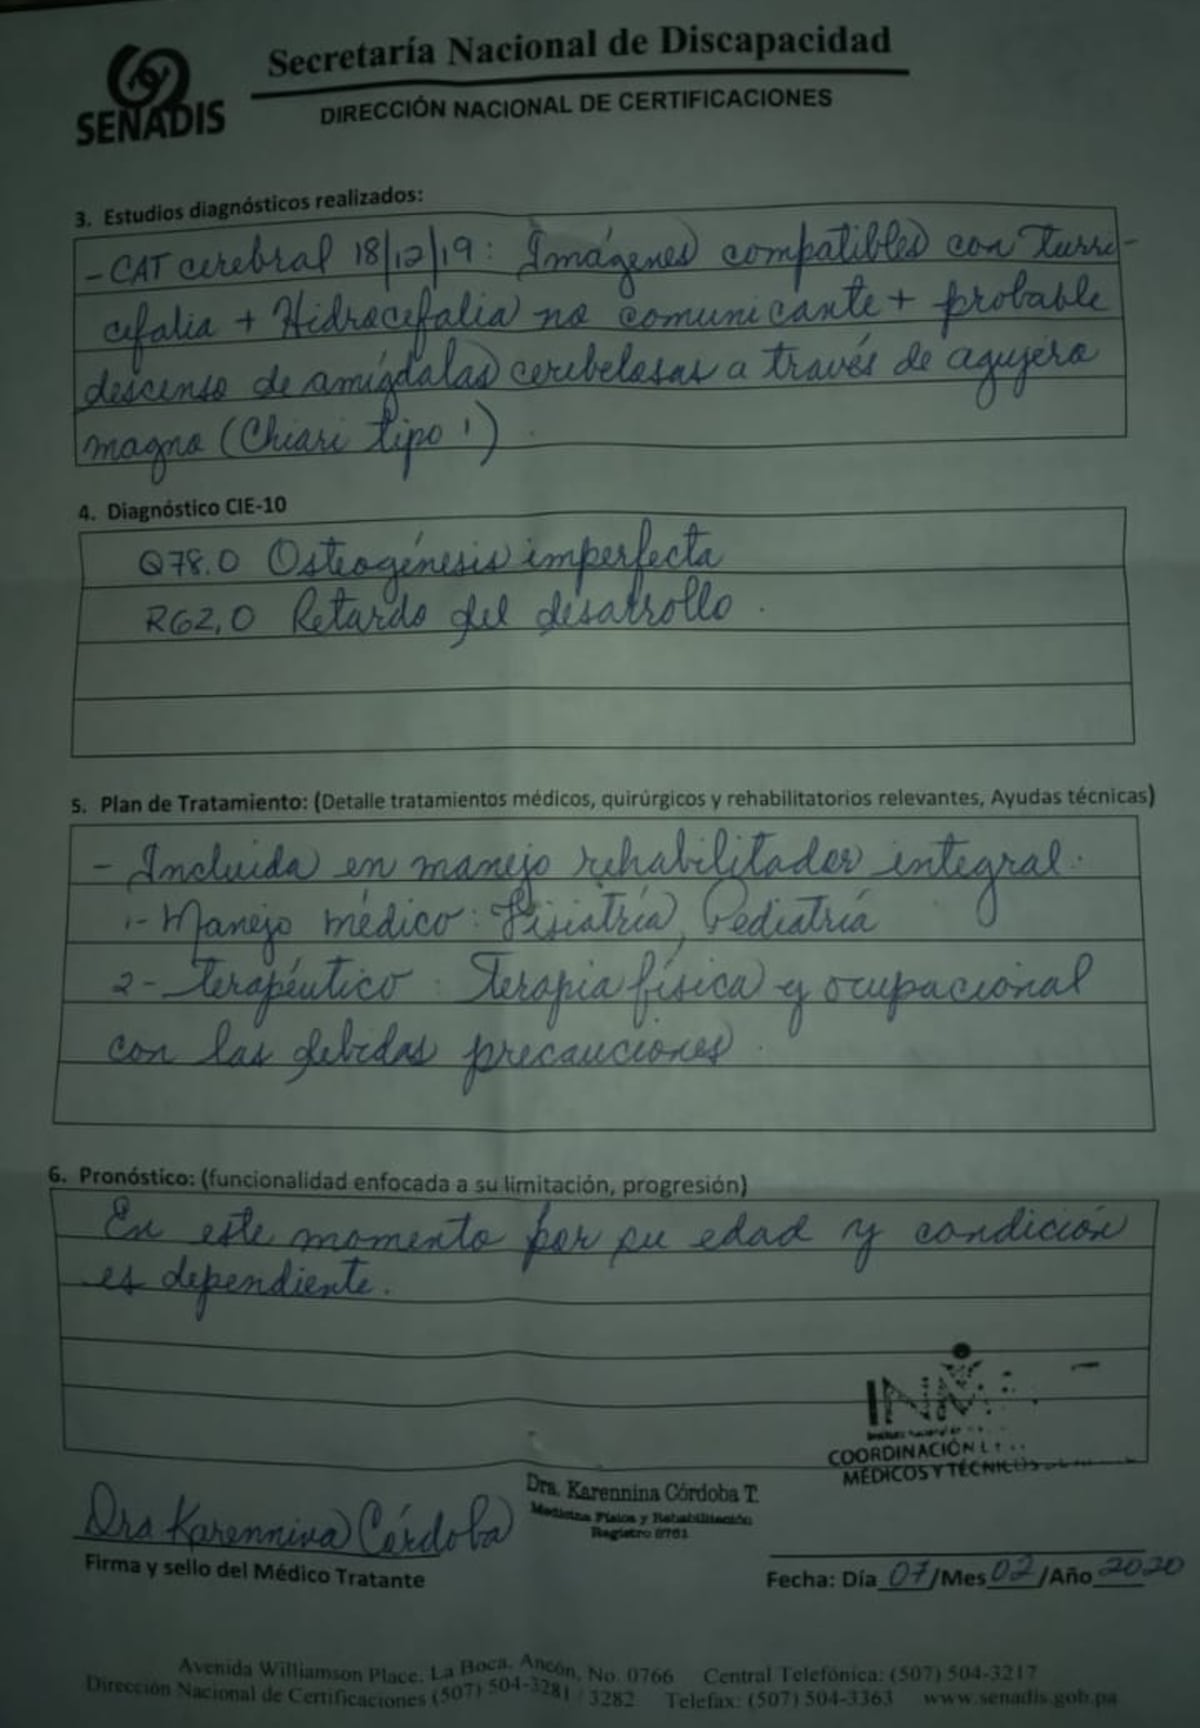 SENADIS
Secretaría Nacional de Discapacidad
DIRECCIÓN NACIONAL DE CERTIFICACIONES
3. Estudios diagnósticos realizados:
- CAT cerebral 18/12/19: Imágenes compatibles con Turri-
cefalia + Hidrocefalia no comunicante + probable
descenso de amígdalas cerebelosas a través de agujero
magno (Chiari tipo 1)
4. Diagnóstico CIE-10
Q78.0 Osteogénesis imperfecta
R62,0 Retardo del desarrollo.
5. Plan de Tratamiento: (Detalle tratamientos médicos, quirúrgicos y rehabilitatorios relevantes, Ayudas técnicas)
- Incluida en manejo rehabilitador integral.
1- Manejo médico: Fisiatría, Pediatría
2- Terapéutico: Terapia física y ocupacional
con las debidas precauciones.
6. Pronóstico: (funcionalidad enfocada a su limitación, progresión)
En este momento por su edad y condición
es dependiente.
COORDINACIÓN
MÉDICOS Y TÉCNICOS
Dra. Karennina Córdoba T.
Medicina Física y Rehabilitación
Registro
Dra Karennina Córdoba
Firma y sello del Médico Tratante
Fecha: Día 07/Mes 02/Año 2020
Avenida Williamson Place, La Boca, Ancón, No. 0766 Central Telefónica: (507) 504-3217
Dirección Nacional de Certificaciones (507) 504-3281 / 3282 Telefax: (507) 504-3363 www.senadis.gob.pa